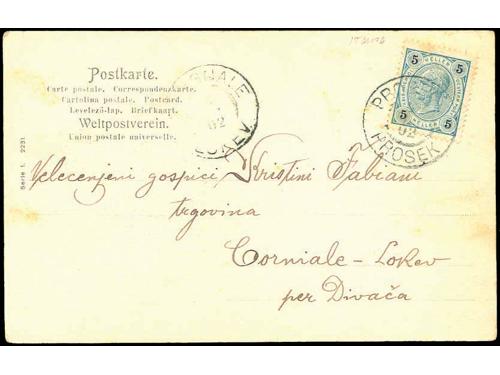 Postkarte.
Carte postale. Correspondenzkarte.
Cartolina postale. Postcard.
Levelező-lap. Briefkaart.
Weltpostverein.
Union postale universelle.
Serie 1. 2231
NIALE
02
LOKEV
5 HELLER 5
5 HELLER 5
PRO
02
PROSEK
Velecenjeni gospici Kristini Fabiani
trgovina
Corniale - Lokev
per Divača